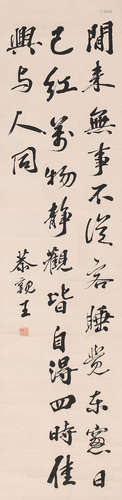 閒来無事不從容睡覺東窻日
已紅萬物静觀皆自得四時佳
興与人同
恭親王